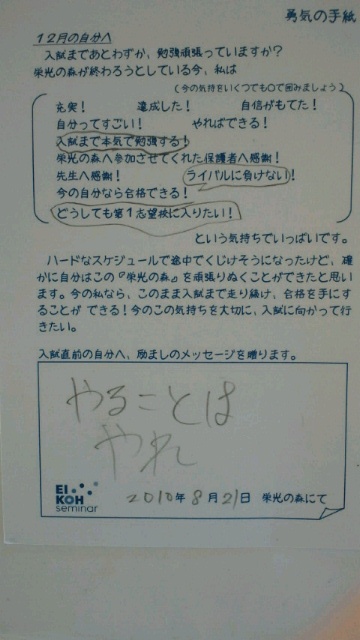 勇気の手紙
12月の自分へ
入試まであとわずか、勉強頑張っていますか?
栄光の森が終わろうとしている今、私は
(今の気持をいくつでも〇で囲みましょう)
充実! 達成した! 自信がもてた!
自分ってすごい! やればできる!
入試まで本気で勉強する!
栄光の森へ参加させてくれた保護者へ感謝!
先生へ感謝! ライバルに負けない!
今の自分なら合格できる!
どうしても第1志望校に入りたい!
という気持ちでいっぱいです。
ハードなスケジュールで途中でくじけそうになったけど、確
かに自分はこの『栄光の森』を頑張りぬくことができたと思い
ます。今の私なら、このまま入試まで走り続け、合格を手にす
ることが できる!今のこの気持を大切に、入試に向かって行
きたい。
入試直前の自分へ、励ましのメッセージを贈ります。
やることは
やれ
EI
KOH
seminar
2010年8月21日 栄光の森にて